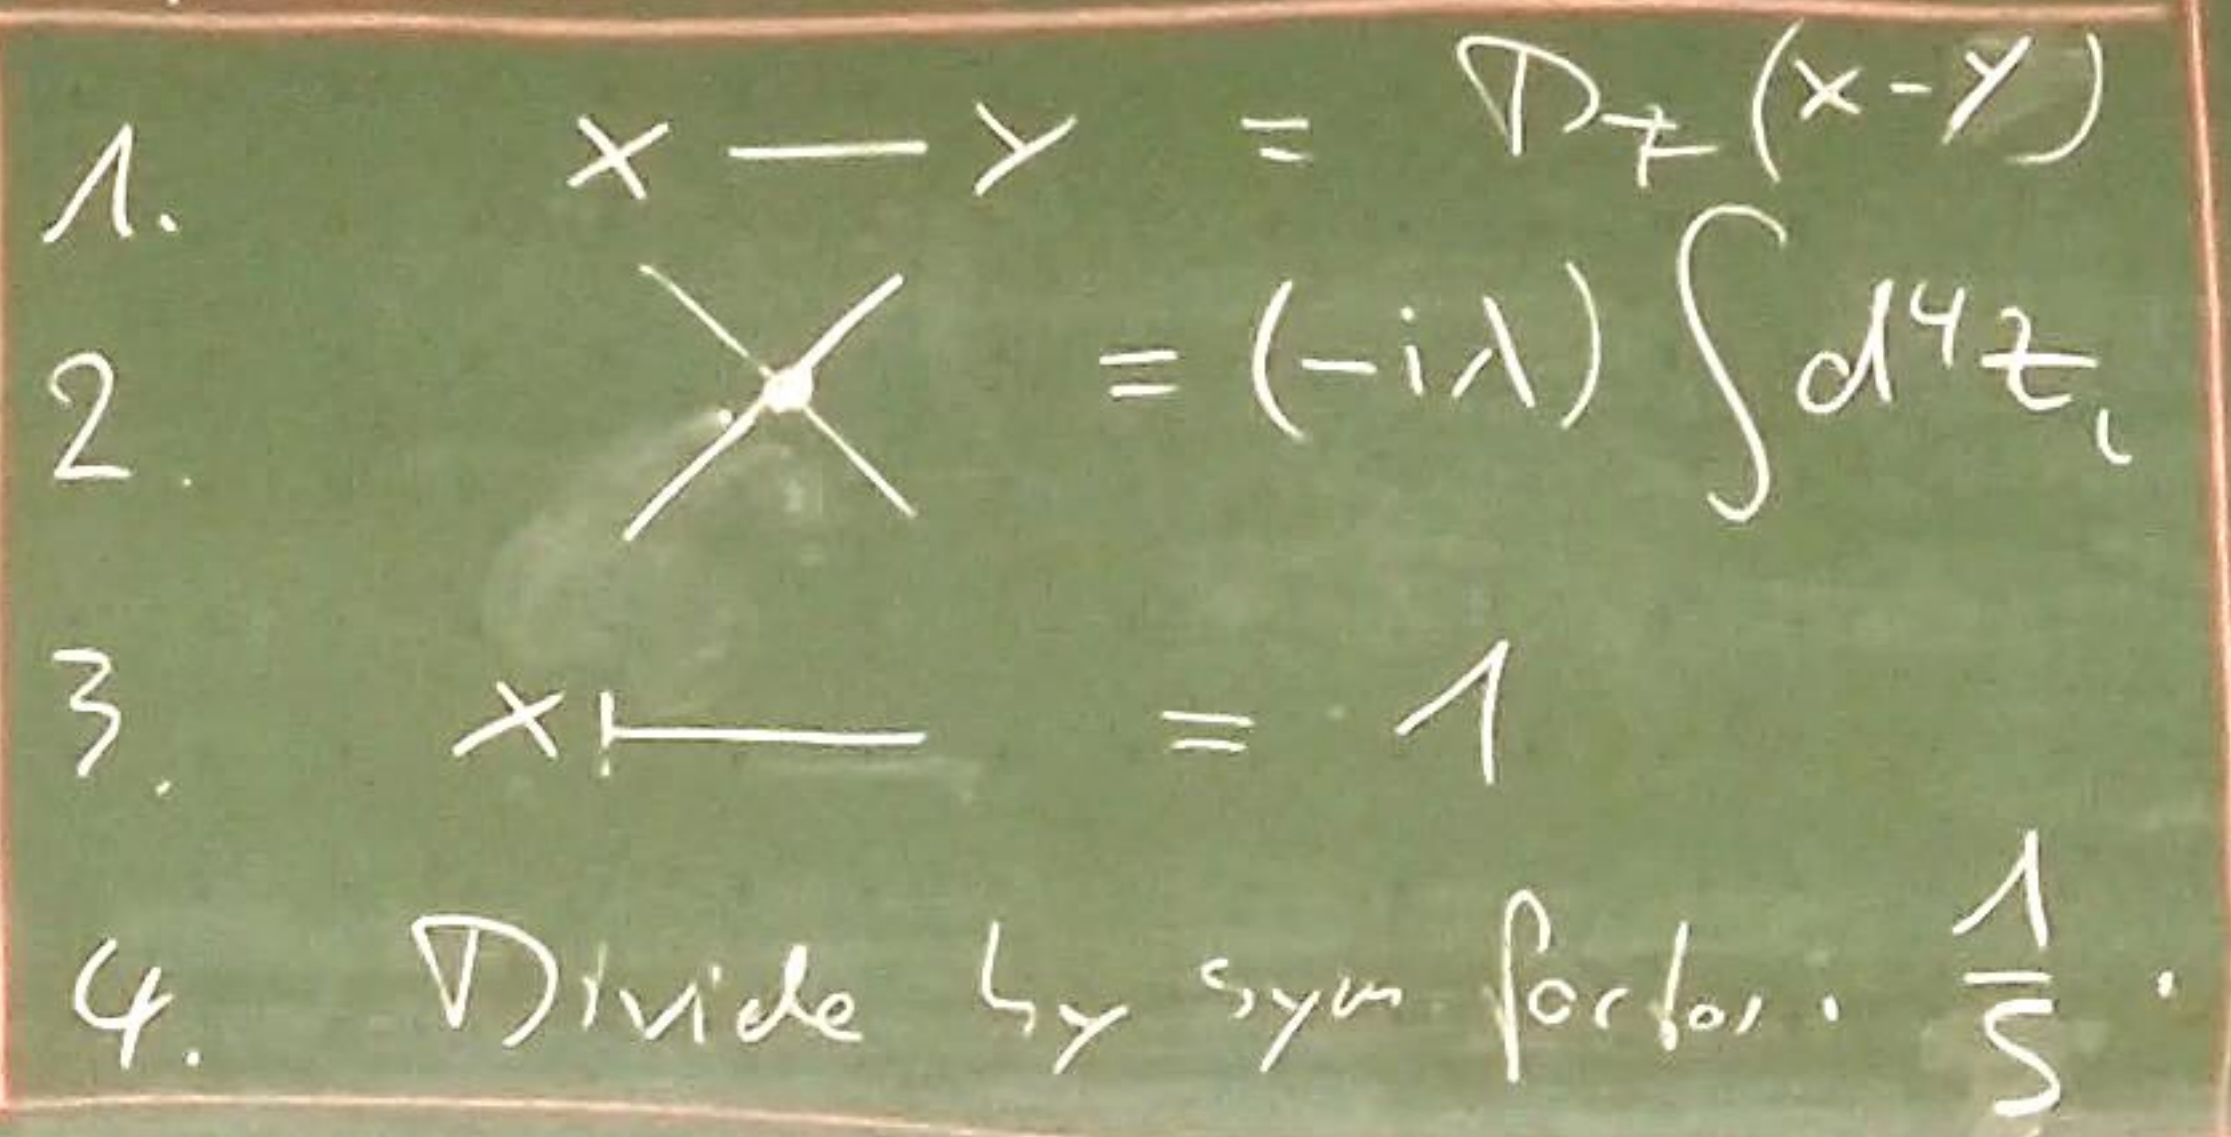 1. x — y = D_F (x-y)
2. = (-iλ) ∫ d⁴z,
3. x = 1
4. Divide by sym. factor. 1/S.